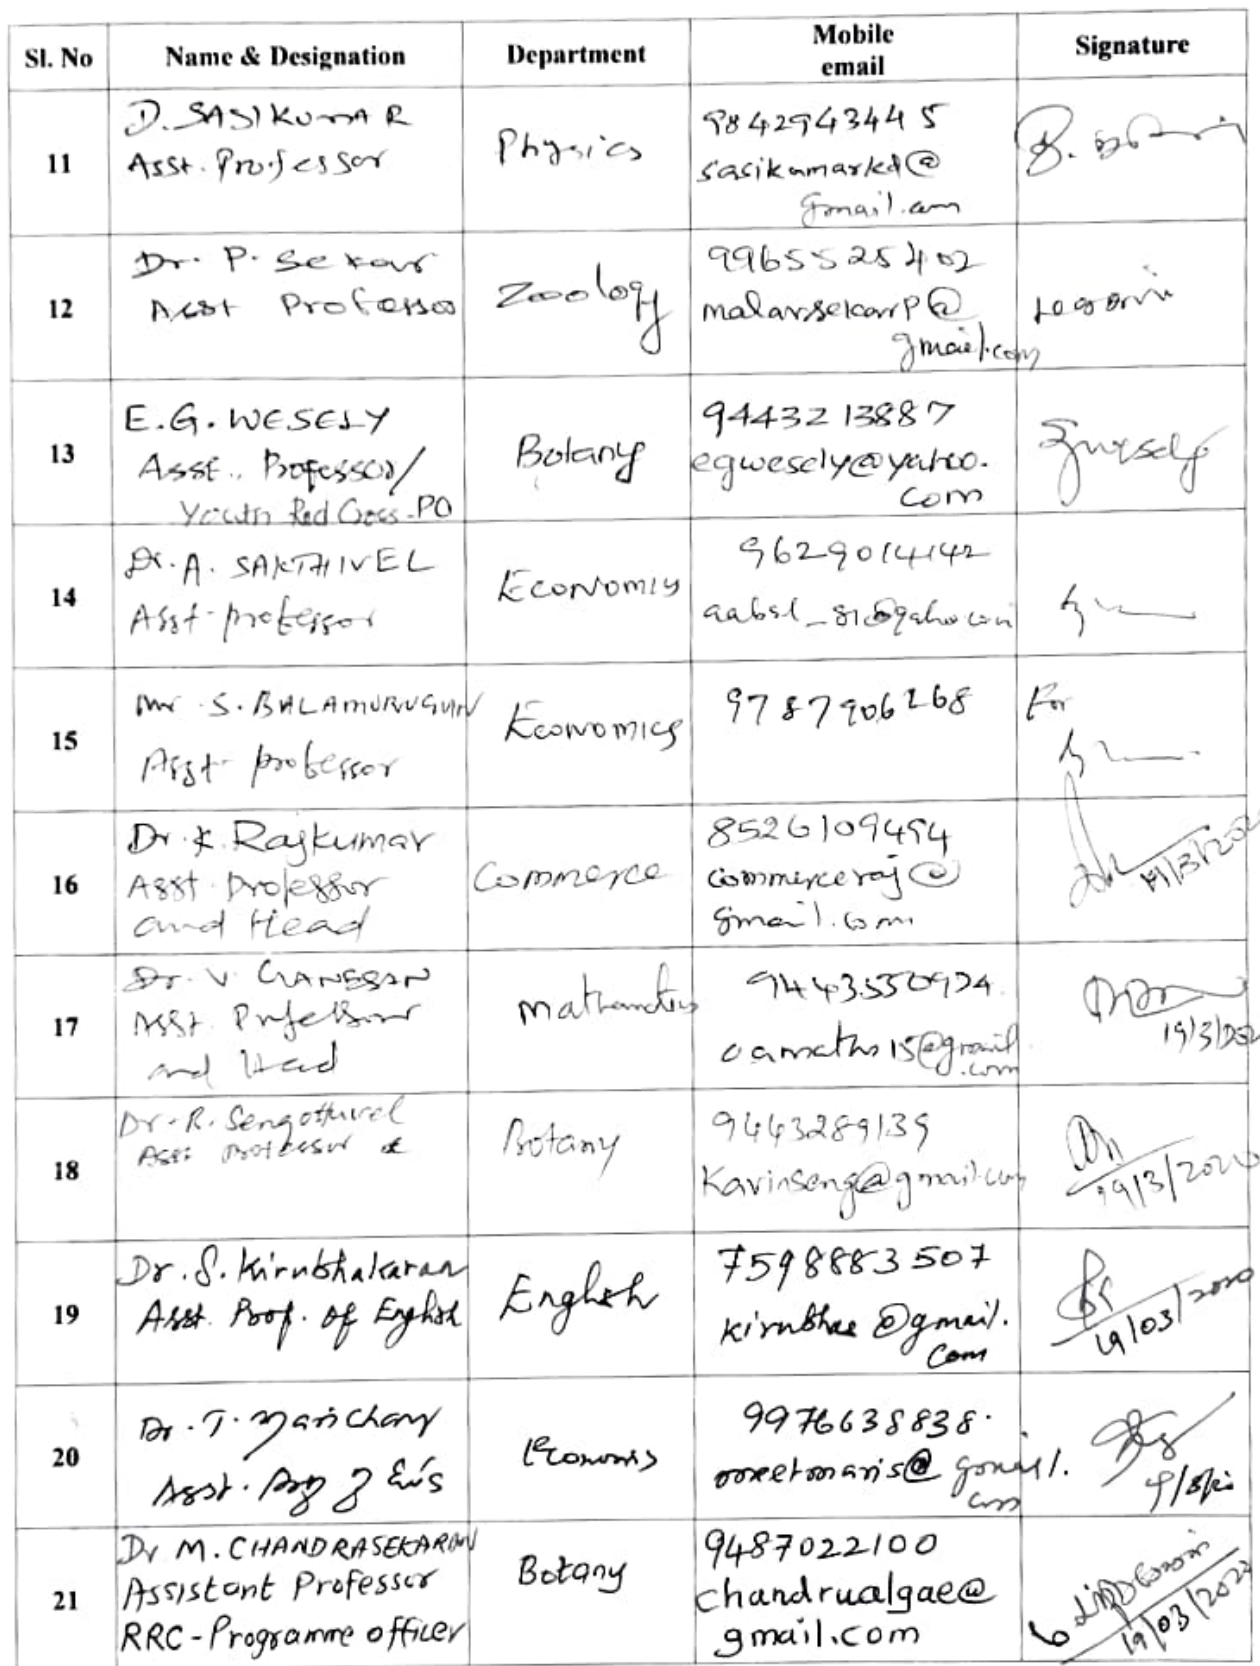 Sl. No Name & Designation Department Mobile email Signature
11
D. SASIKUMAR
Asst. Professor
Physics
9842943445
sasikumarkd@
gmail.com
12
Dr. P. Sekar
Asst Professor
Zoology
9965525402
malarsekarp@
gmail.com
13
E.G. WESELY
Asst.. Professor/
Youth Red Cross-PO
Botany
9443213887
egwesely@yahoo.
com
14
Dr. A. SAKTHIVEL
Asst-professor
Economics
9629014142
15
Mr S. BALAMURUGAN
Asst-professor
Economics
9787906268
For
16
Dr. K. Rajkumar
Asst Professor
and Head
Commerce
8526109494
commerceraj@
gmail.com
19/3/202
17
Dr. V. GANESAN
Asst. Professor
and Head
Mathematics
@gmail
.com
19/3/202
18
Dr. R. Sengottuvel
Asst Professor
Botany
9443289139
Kavinseng@gmail.com
19/3/2020
19
Dr. S. Kirubhakaran
Asst. Prof. of English
English
7598883507
kirubhae@gmail.
com
19/03/2020
20
Dr. T. Marichamy
Asst. Prof
Economics
9976638838.
meetmaris@gmail.
com
21
Dr M. CHANDRASEKARAN
Assistant Professor
RRC-Programme officer
Botany
9487022100
chandrualgae@
gmail.com
19/03/2020